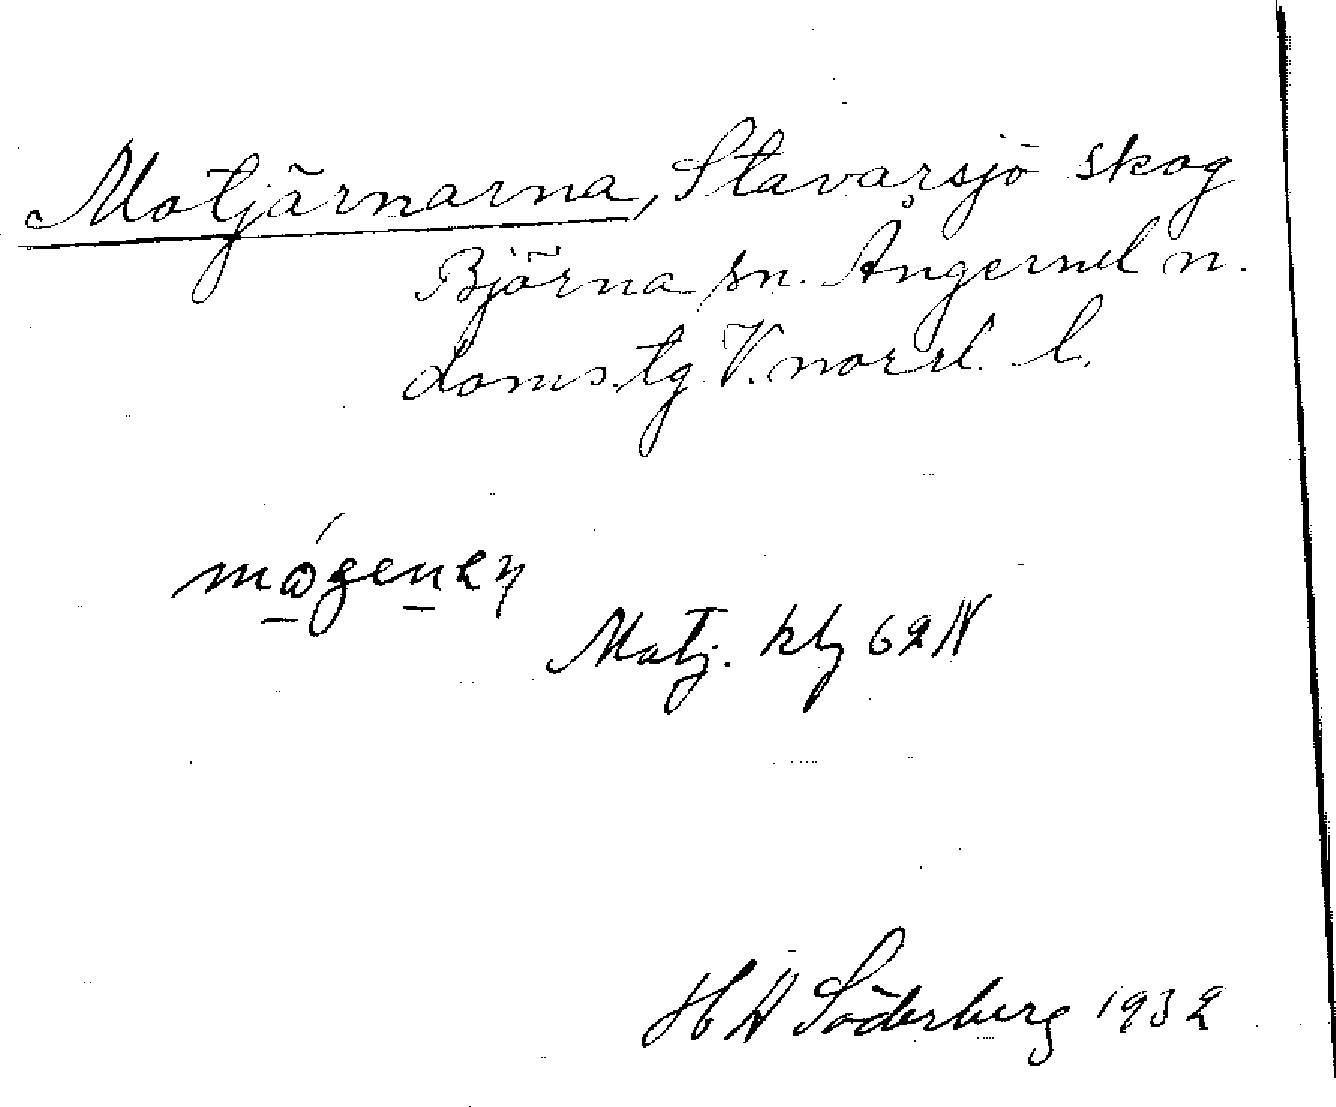 Motjärnarna, Stavarsjö skog
Björna sn. Ångerml n.
doms.tg V. norrl. l.
Motj. ktg 62 N
H A Söderberg 1932